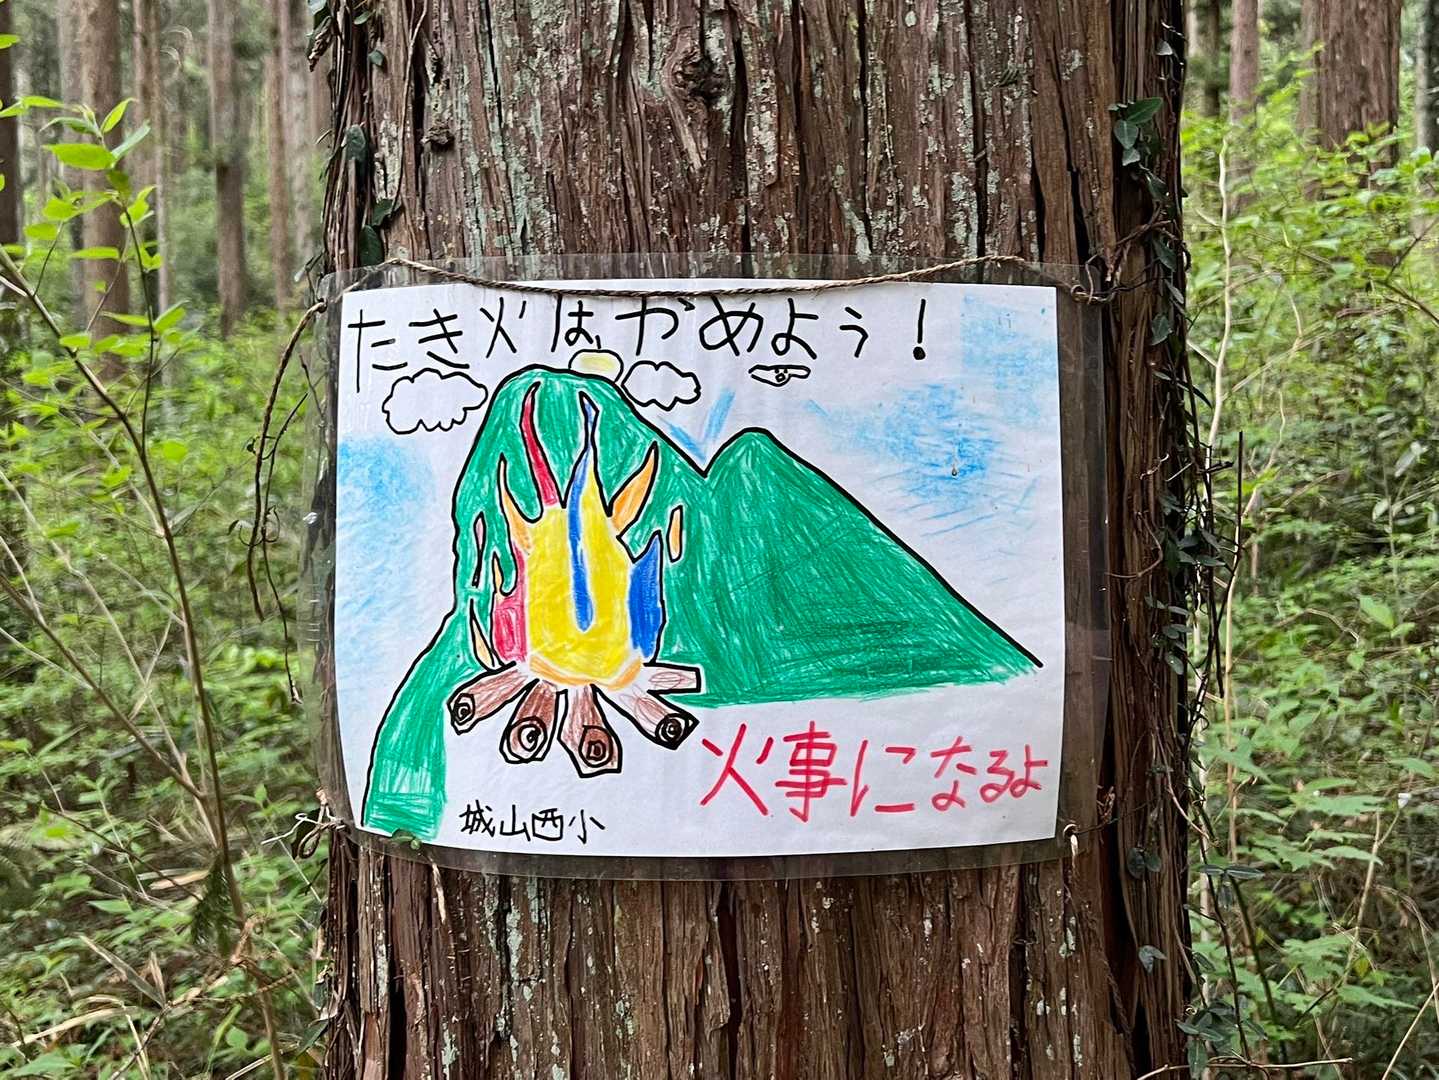 たき火はやめよう！
火事になるよ
城山西小